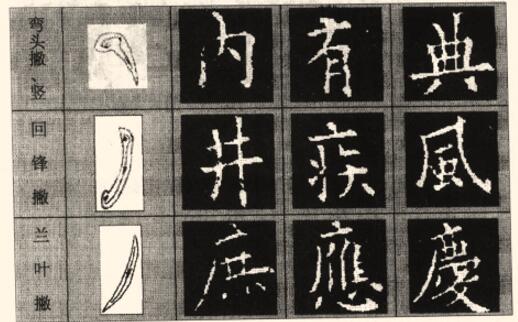 弯头撇、竖 内 有 典
回锋撇 井 疾 風
兰叶撇 庶 應 慶